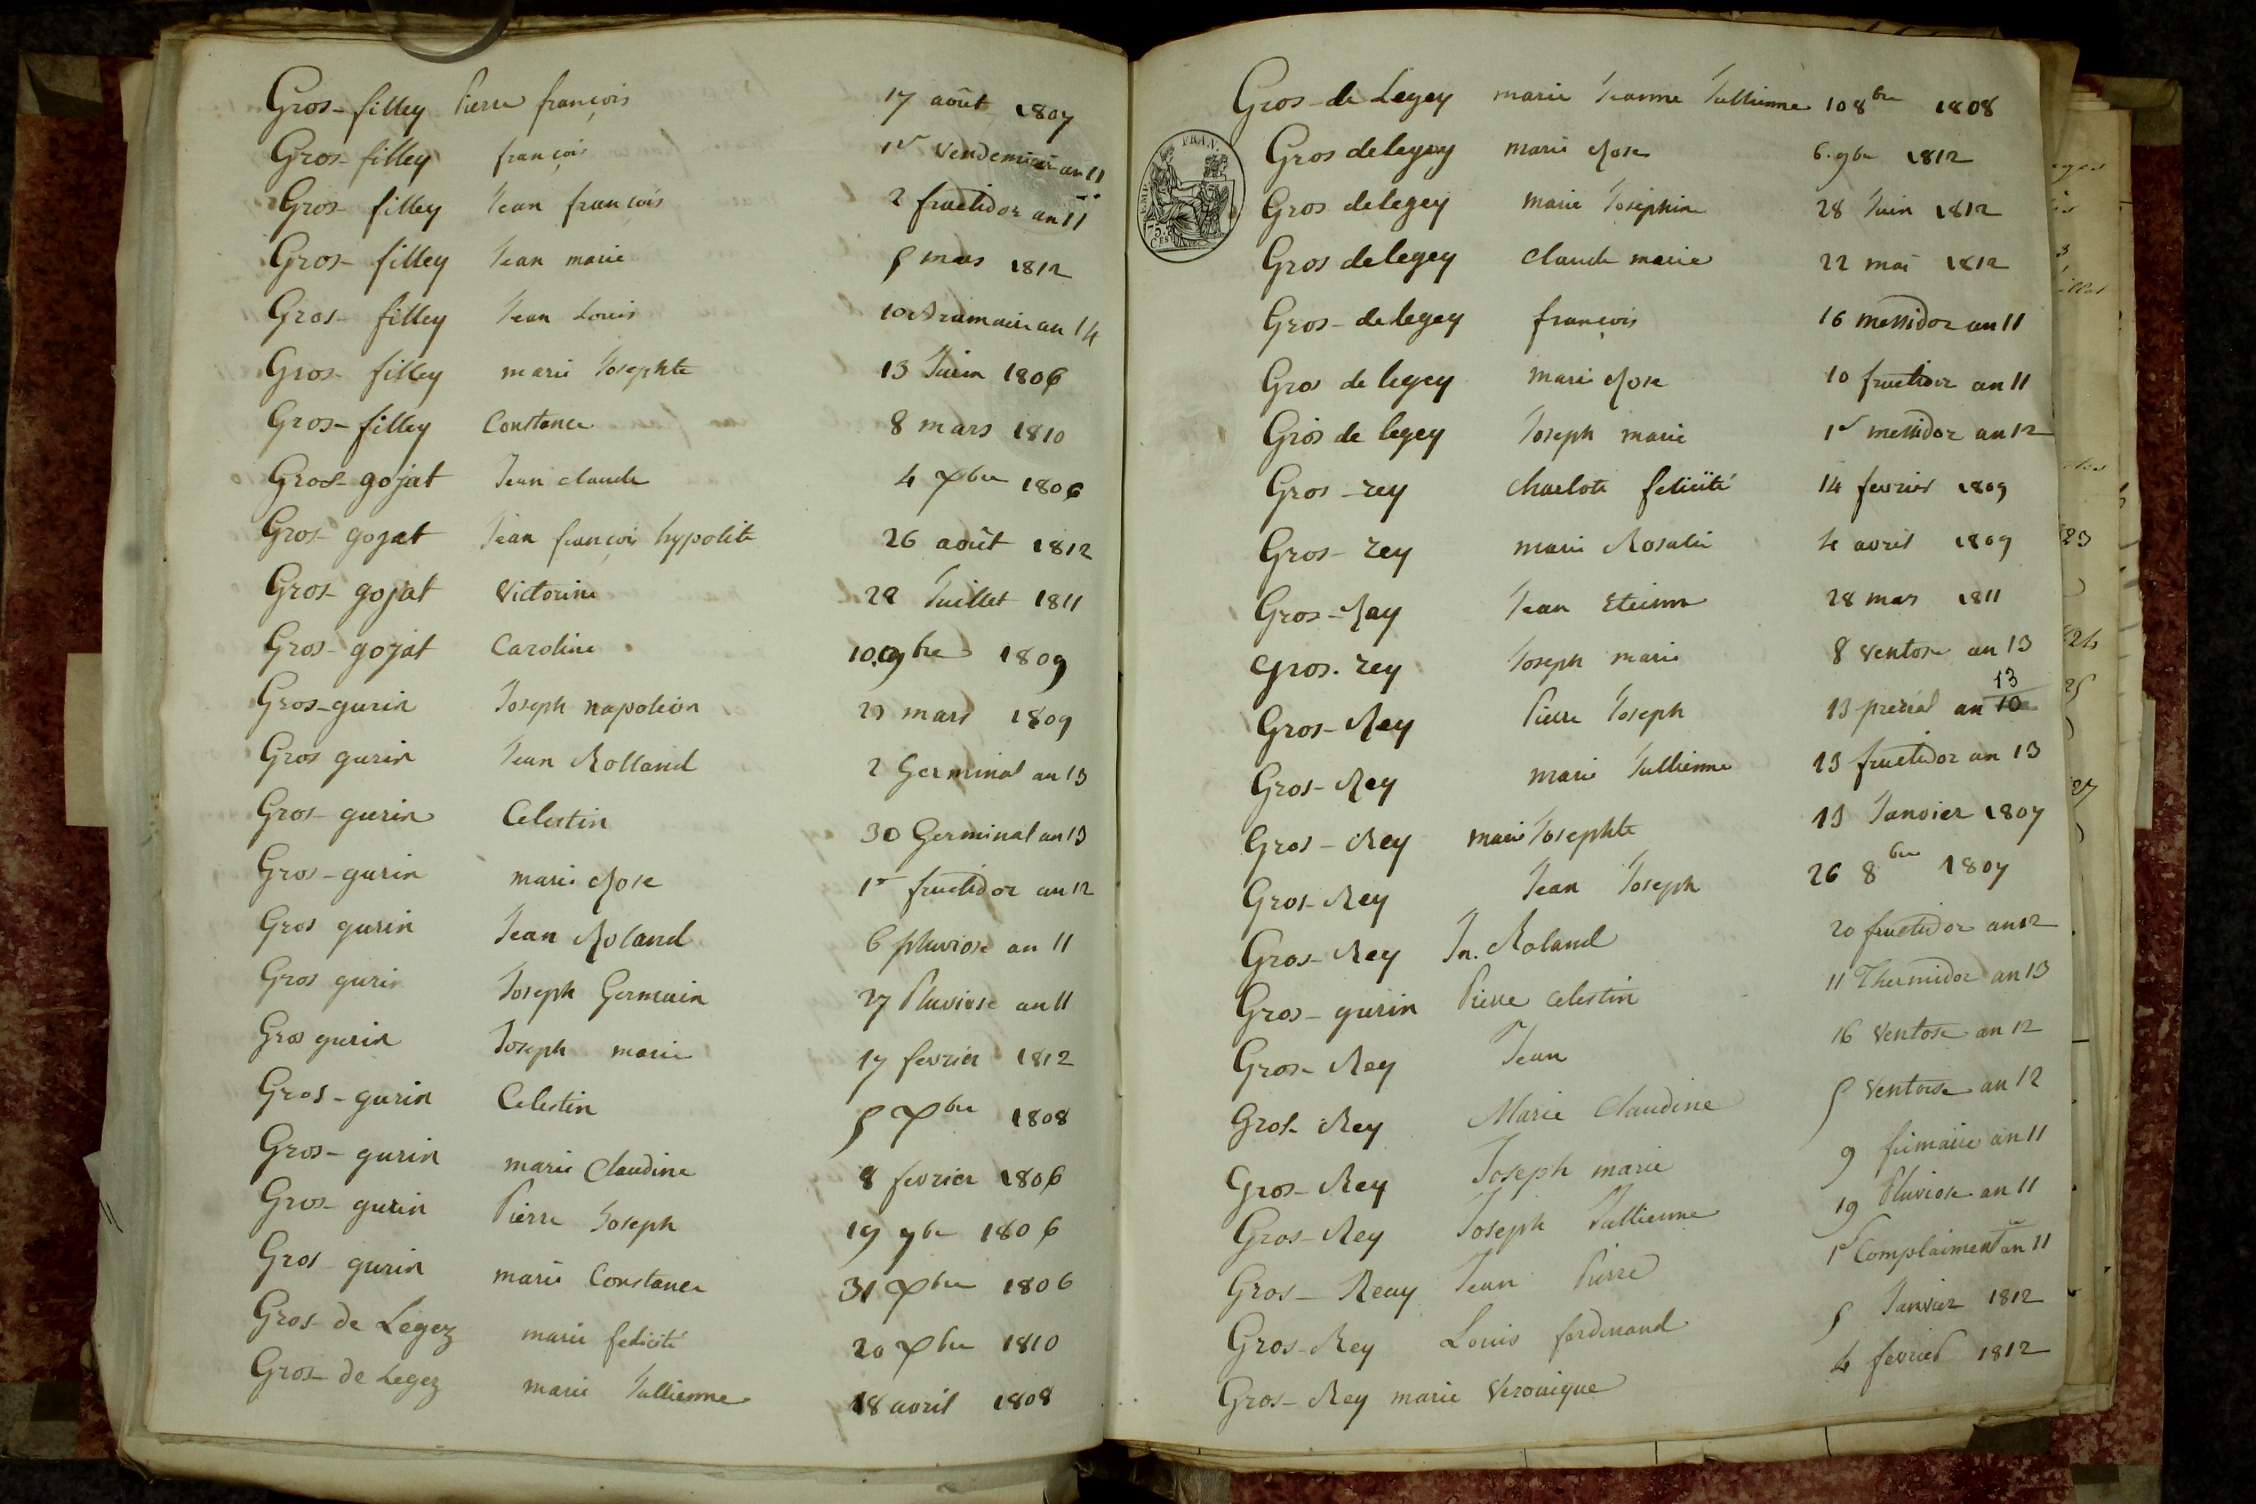 Gros-filley Pierre françois 17 août 1807
Gros-filley françois 1er Vendemiair an 11
Gros-filley Jean françois 2 fructidor an 11
Gros-filley Jean marie 5 mars 1812
Gros-filley Jean Louis 10 Brumair an 14
Gros-filley marie Josephte 13 Juin 1806
Gros-filley Constance 8 mars 1810
Gros-gojat Jean claude 4 Xbre 1806
Gros-gojat Jean françois hypolite 26 août 1812
Gros-gojat Victorine 22 Juillet 1811
Gros-gojat Caroline 10 9bre 1809
Gros-gurin Joseph napoléon 29 mars 1809
Gros gurin Jean Rolland 2 Germinal an 13
Gros-gurin Celestin 30 Germinal an 13
Gros-gurin marie Rose 1er fructidor an 12
Gros gurin Jean Roland 6 pluviose an 11
Gros gurin Joseph Germain 27 Pluviose an 11
Gros gurin Joseph marie 17 fevrier 1812
Gros-gurin Celestin 5 Xbre 1808
Gros-gurin marie Claudine 8 fevrier 1806
Gros-gurin Pierre Joseph 19 9bre 1806
Gros gurin marie Constance 31 Xbre 1806
Gros-de Legez marie felicité 20 Xbre 1810
Gros-de Legez marie Jullienne 18 avril 1808
Gros-de Legey marie Jeanne Jullienne 10 8bre 1808
FRAN.
EMP.
75.
CES
Gros delegey marie Rose 6. 9bre 1812
Gros delegey marie Josephine 28 Juin 1812
Gros delegey claude marie 22 mai 1812
Gros-delegey françois 16 messidor an 11
Gros de legey marie Rose 10 fructidor an 11
Gros de legey Joseph marie 1er messidor an 12
Gros-rey charlote felicité 14 fevrier 1809
Gros-rey marie Rosalie 4 avril 1809
Gros-Ray Jean Etienne 28 mars 1811
Gros-rey Joseph marie 8 ventose an 13
Gros-Rey Pierre Joseph 13 prerial an 10 13
Gros-Rey marie Jullienne 13 fructidor an 13
Gros-Rey marie Josephte 13 Janvier 1807
Gros-Rey Jean Joseph 26 8bre 1807
Gros-Rey Jn. Roland 20 fructidor an 12
Gros-gurin Pierre celestin 11 Thermidor an 13
Gros-Rey Jean 16 Ventose an 12
Gros-Rey Marie Claudine 5 Ventose an 12
Gros-Rey Joseph marie 9 frimaire an 11
Gros-Rey Joseph Jullienne 19 Pluviose an 11
Gros-Reuy Jean Pierre 1er Complaimentre an 11
Gros-Rey Louis ferdinand 5 Janvier 1812
Gros-Rey marie Veronique 4 fevrier 1812